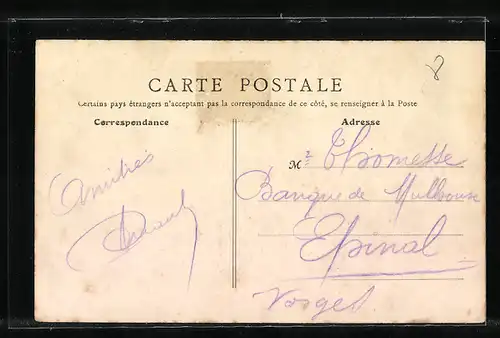 8
CARTE POSTALE
Certains pays étrangers n'acceptant pas la correspondance de ce côté, se renseigner à la Poste
Correspondance
Adresse
Amitiés
Mr Thomesse
Banque de Mulhouse
Epinal
Vosges